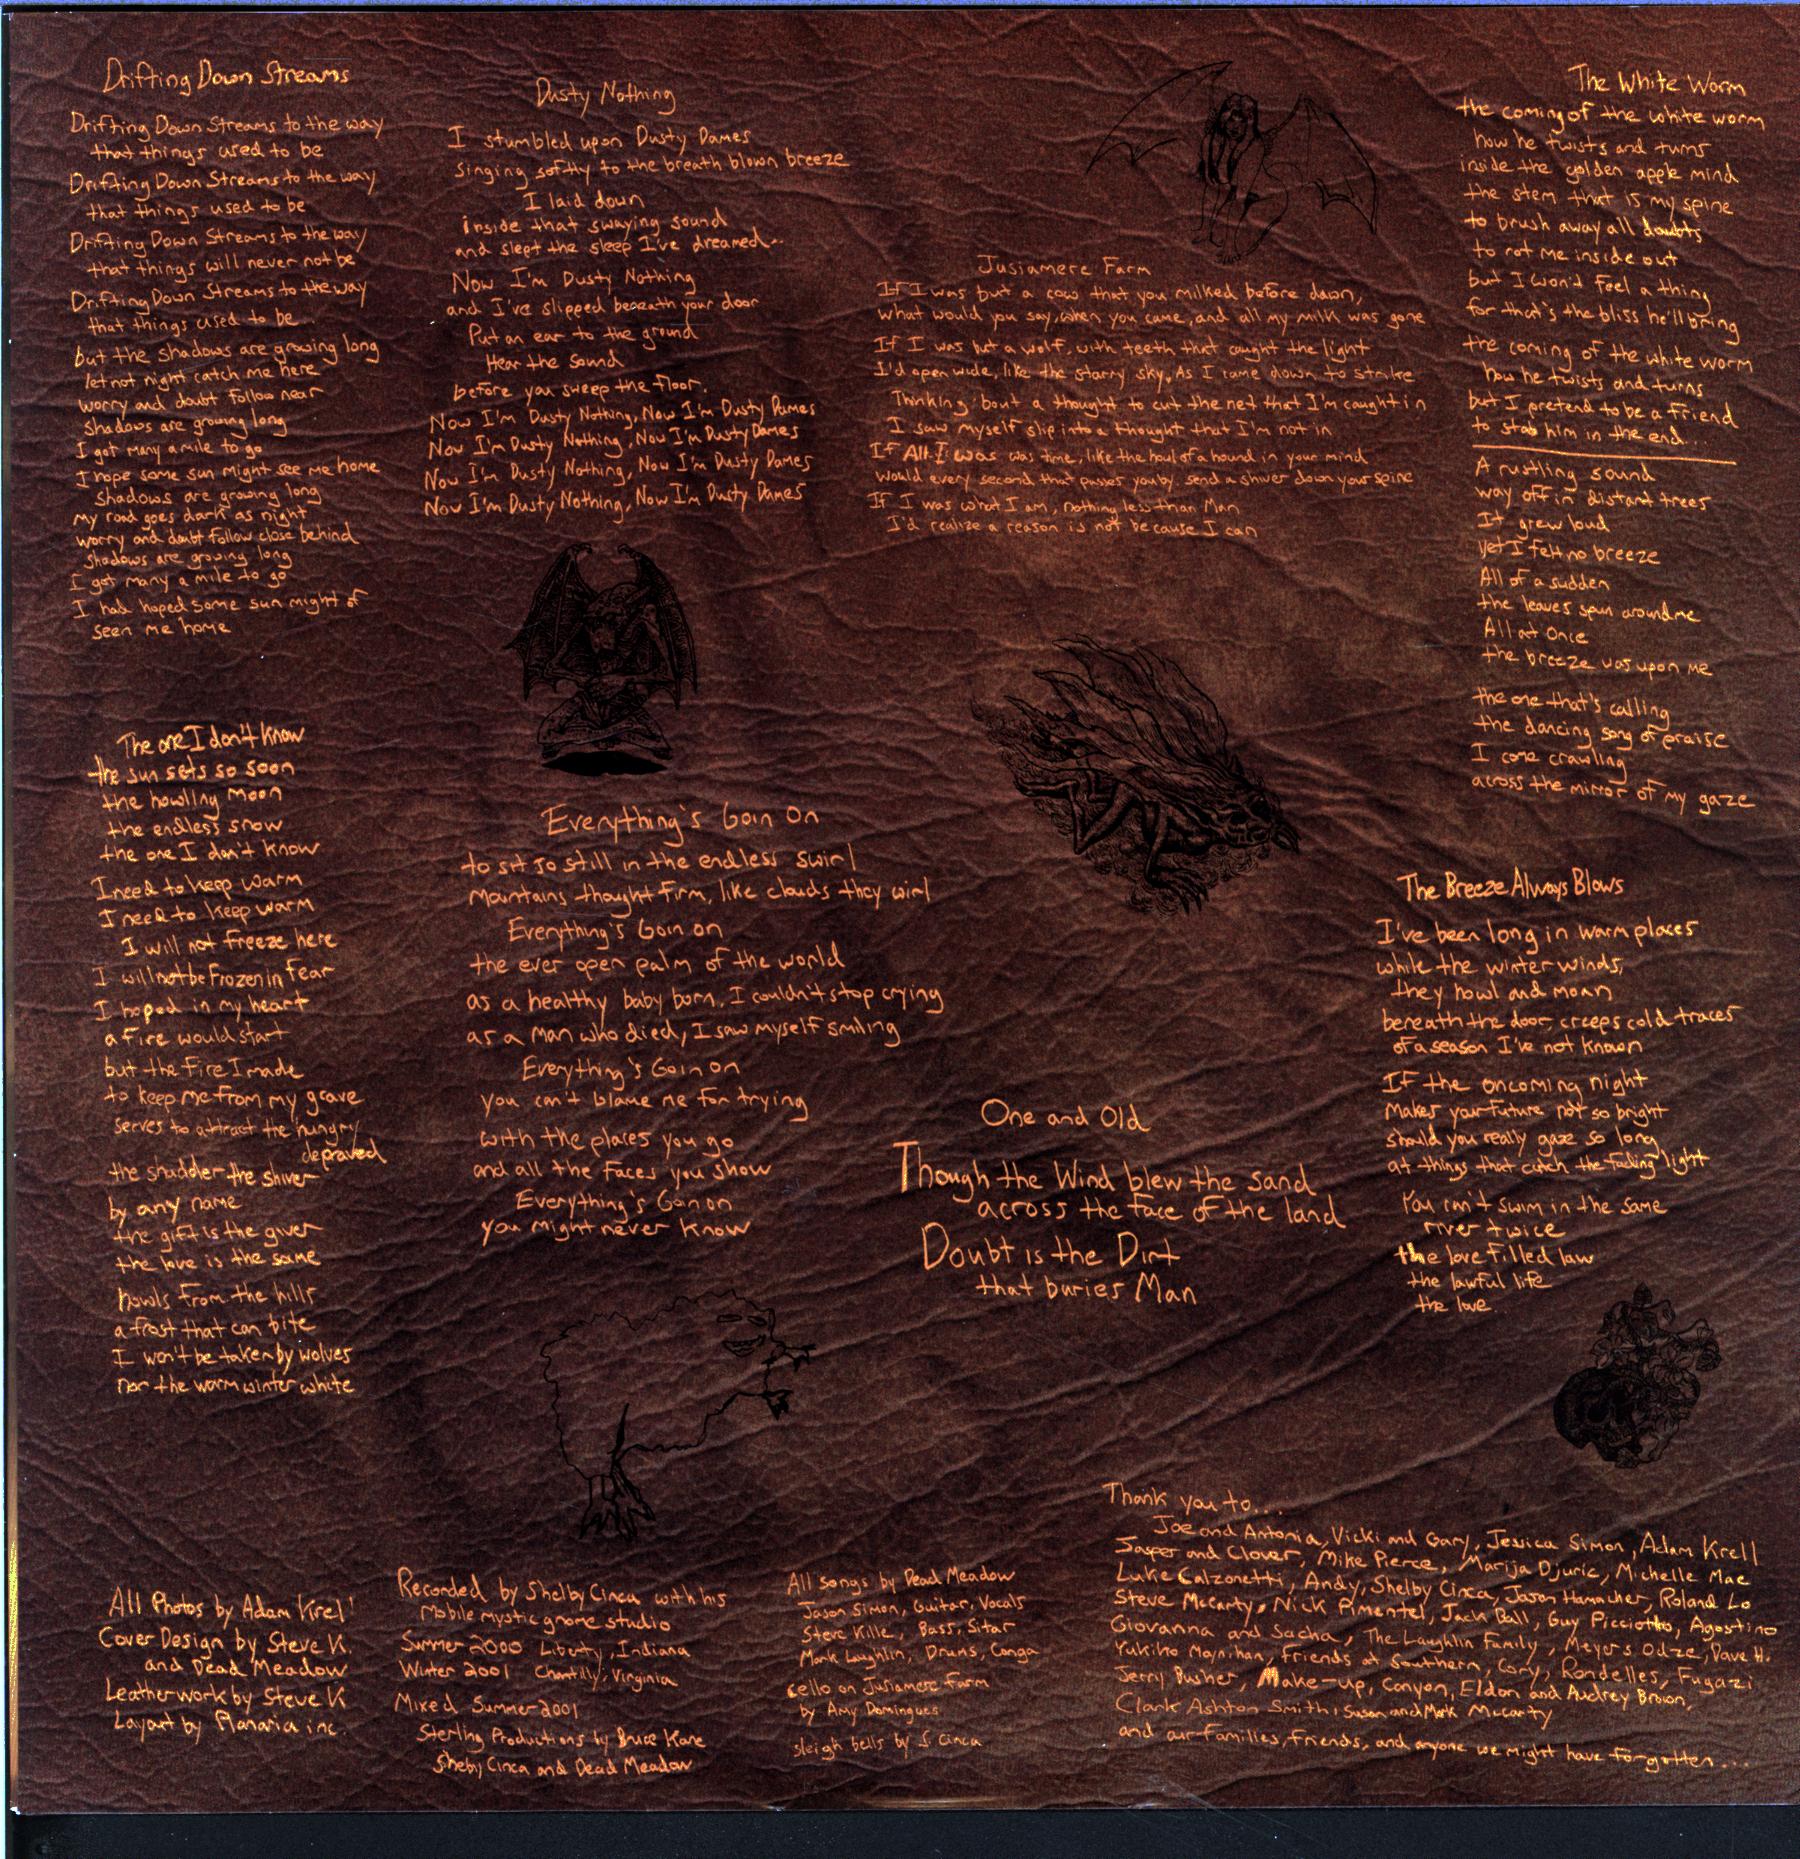 Drifting Down Streams
Drifting Down Streams to the way
that things used to be
Drifting Down Streams to the way
that things used to be
Drifting Down Streams to the way
that things will never not be
Drifting Down Streams to the way
that things used to be
but the shadows are growing long
let not night catch me here
worry and doubt follow near
shadows are growing long
I got many a mile to go
I hope some sun might see me home
shadows are growing long
my road goes dark as night
worry and doubt follow close behind
shadows are growing long
I got many a mile to go
I had hoped some sun might of
seen me home
Dusty Nothing
I stumbled upon Dusty Dames
singing softly to the breath blown breeze
I laid down
inside that swaying sound
and slept the sleep I've dreamed...
Now I'm Dusty Nothing
and I've slipped beneath your door
Put an ear to the ground
Hear the sound
before you sweep the floor.
Now I'm Dusty Nothing, Now I'm Dusty Dames
Now I'm Dusty Nothing, Now I'm Dusty Dames
Now I'm Dusty Nothing, Now I'm Dusty Dames
Now I'm Dusty Nothing, Now I'm Dusty Dames
Jusiamere Farm
If I was but a cow that you milked before dawn,
what would you say, when you came, and all my milk was gone
If I was but a wolf, with teeth that caught the light
I'd open wide, like the starry sky, As I came down to strike
Thinking 'bout a thought to cut the net that I'm caught in
I saw myself slip into a thought that I'm not in
If All I was was time, like the howl of a hound in your mind
Would every second that passes you by send a shiver down your spine
If I was what I am, nothing less than Man
I'd realize a reason is not because I can
The White Worm
the coming of the white worm
how he twists and turns
inside the golden apple mind
the stem that is my spine
to brush away all doubts
to rot me inside out
but I won't feel a thing
for that's the bliss he'll bring
the coming of the white worm
how he twists and turns
but I pretend to be a friend
to stab him in the end...
A rustling sound
way off in distant trees
It grew loud
yet I felt no breeze
All of a sudden
the leaves spun around me
All at Once
the breeze was upon me
the one that's calling
the dancing song of praise
I come crawling
across the mirror of my gaze
The one I don't know
the sun sets so soon
the howling moon
the endless snow
the one I don't know
I need to keep warm
I need to keep warm
I will not freeze here
I will not be frozen in fear
I hoped in my heart
a fire would start
but the fire I made
to keep me from my grave
serves to attract the hungry
depraved
the shudder the shiver
by any name
the gift is the giver
the love is the same
howls from the hills
a frost that can bite
I won't be taken by wolves
nor the warm winter white
Everything's Goin On
to sit so still in the endless swirl
Mountains thought firm, like clouds they wirl
Everything's Goin on
the ever open palm of the world
as a healthy baby born, I couldn't stop crying
as a man who died, I saw myself smiling
Everything's Goin on
you can't blame me for trying
with the places you go
and all the faces you show
Everything's Goin on
you might never know
One and Old
Though the Wind blew the sand
across the face of the land
Doubt is the Dirt
that buries Man
The Breeze Always Blows
I've been long in warm places
while the winter winds,
they howl and moan
beneath the door, creeps cold traces
of a season I've not known
If the oncoming night
Makes your future not so bright
should you really gaze so long
at things that catch the fading light
You can't swim in the same
river twice
the love filled law
the lawful life
the love
All Photos by Adam Krell
Cover Design by Steve K.
and Dead Meadow
Leatherwork by Steve K
Layout by Planaria inc.
Recorded by Shelby Cinca with his
Mobile mystic gnome studio
Summer 2000 Liberty, Indiana
Winter 2001 Chantilly, Virginia
Mixed Summer 2001
Sterling Productions by Bruce Kane
Sheby Cinca and Dead Meadow
All songs by Dead Meadow
Jason Simon, Guitar, Vocals
Steve Kille, Bass, Sitar
Mark Laughlin, Drums, Conga
cello on Jusiamere Farm
by Amy Domingues
sleigh bells by S. Cinca
Thank you to...
Joe and Antonia, Vicki and Gary, Jessica Simon, Adam Krell
Jasper and Clover, Mike Pierce, Marija Djuric, Michelle Mae
Luke Calzonetti, Andy, Shelby Cinca, Jason Hamacher, Roland Lo
Steve McCarty, Nick Pimentel, Jack Ball, Guy Picciotto, Agostino
Giovanna and Sacha, The Laughlin Family, Meyers Odze, Dave H.
Yukiko Moynihan, friends at Southern, Cory, Rondelles, Fugazi
Jerry Busher, Make-up, Canyon, Eldon and Audrey Brown,
Clark Ashton Smith, Susan and Mark McCarty
and our Families, friends, and anyone we might have forgotten....